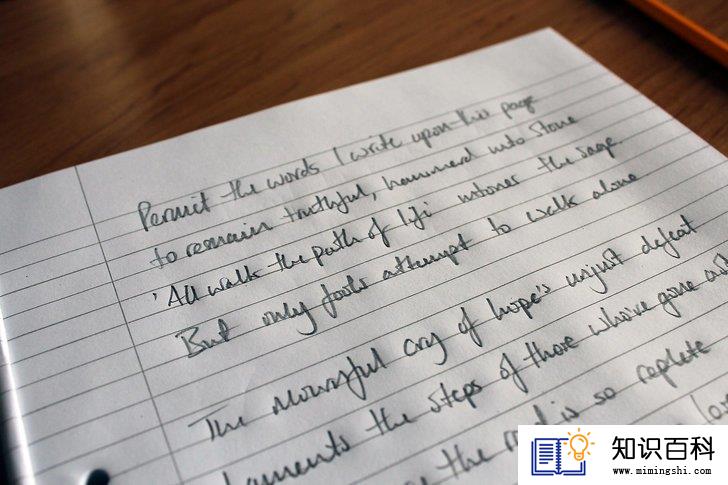 Permit the words I write upon this page
to remain truthful, hammered into stone
'All walk the path of life' intones the sage.
But only fools attempt to walk alone
The mournful cry of hope's unjust defeat
laments the steps of those who've gone
the road is so replete
知识百科
www.mimingshi.com